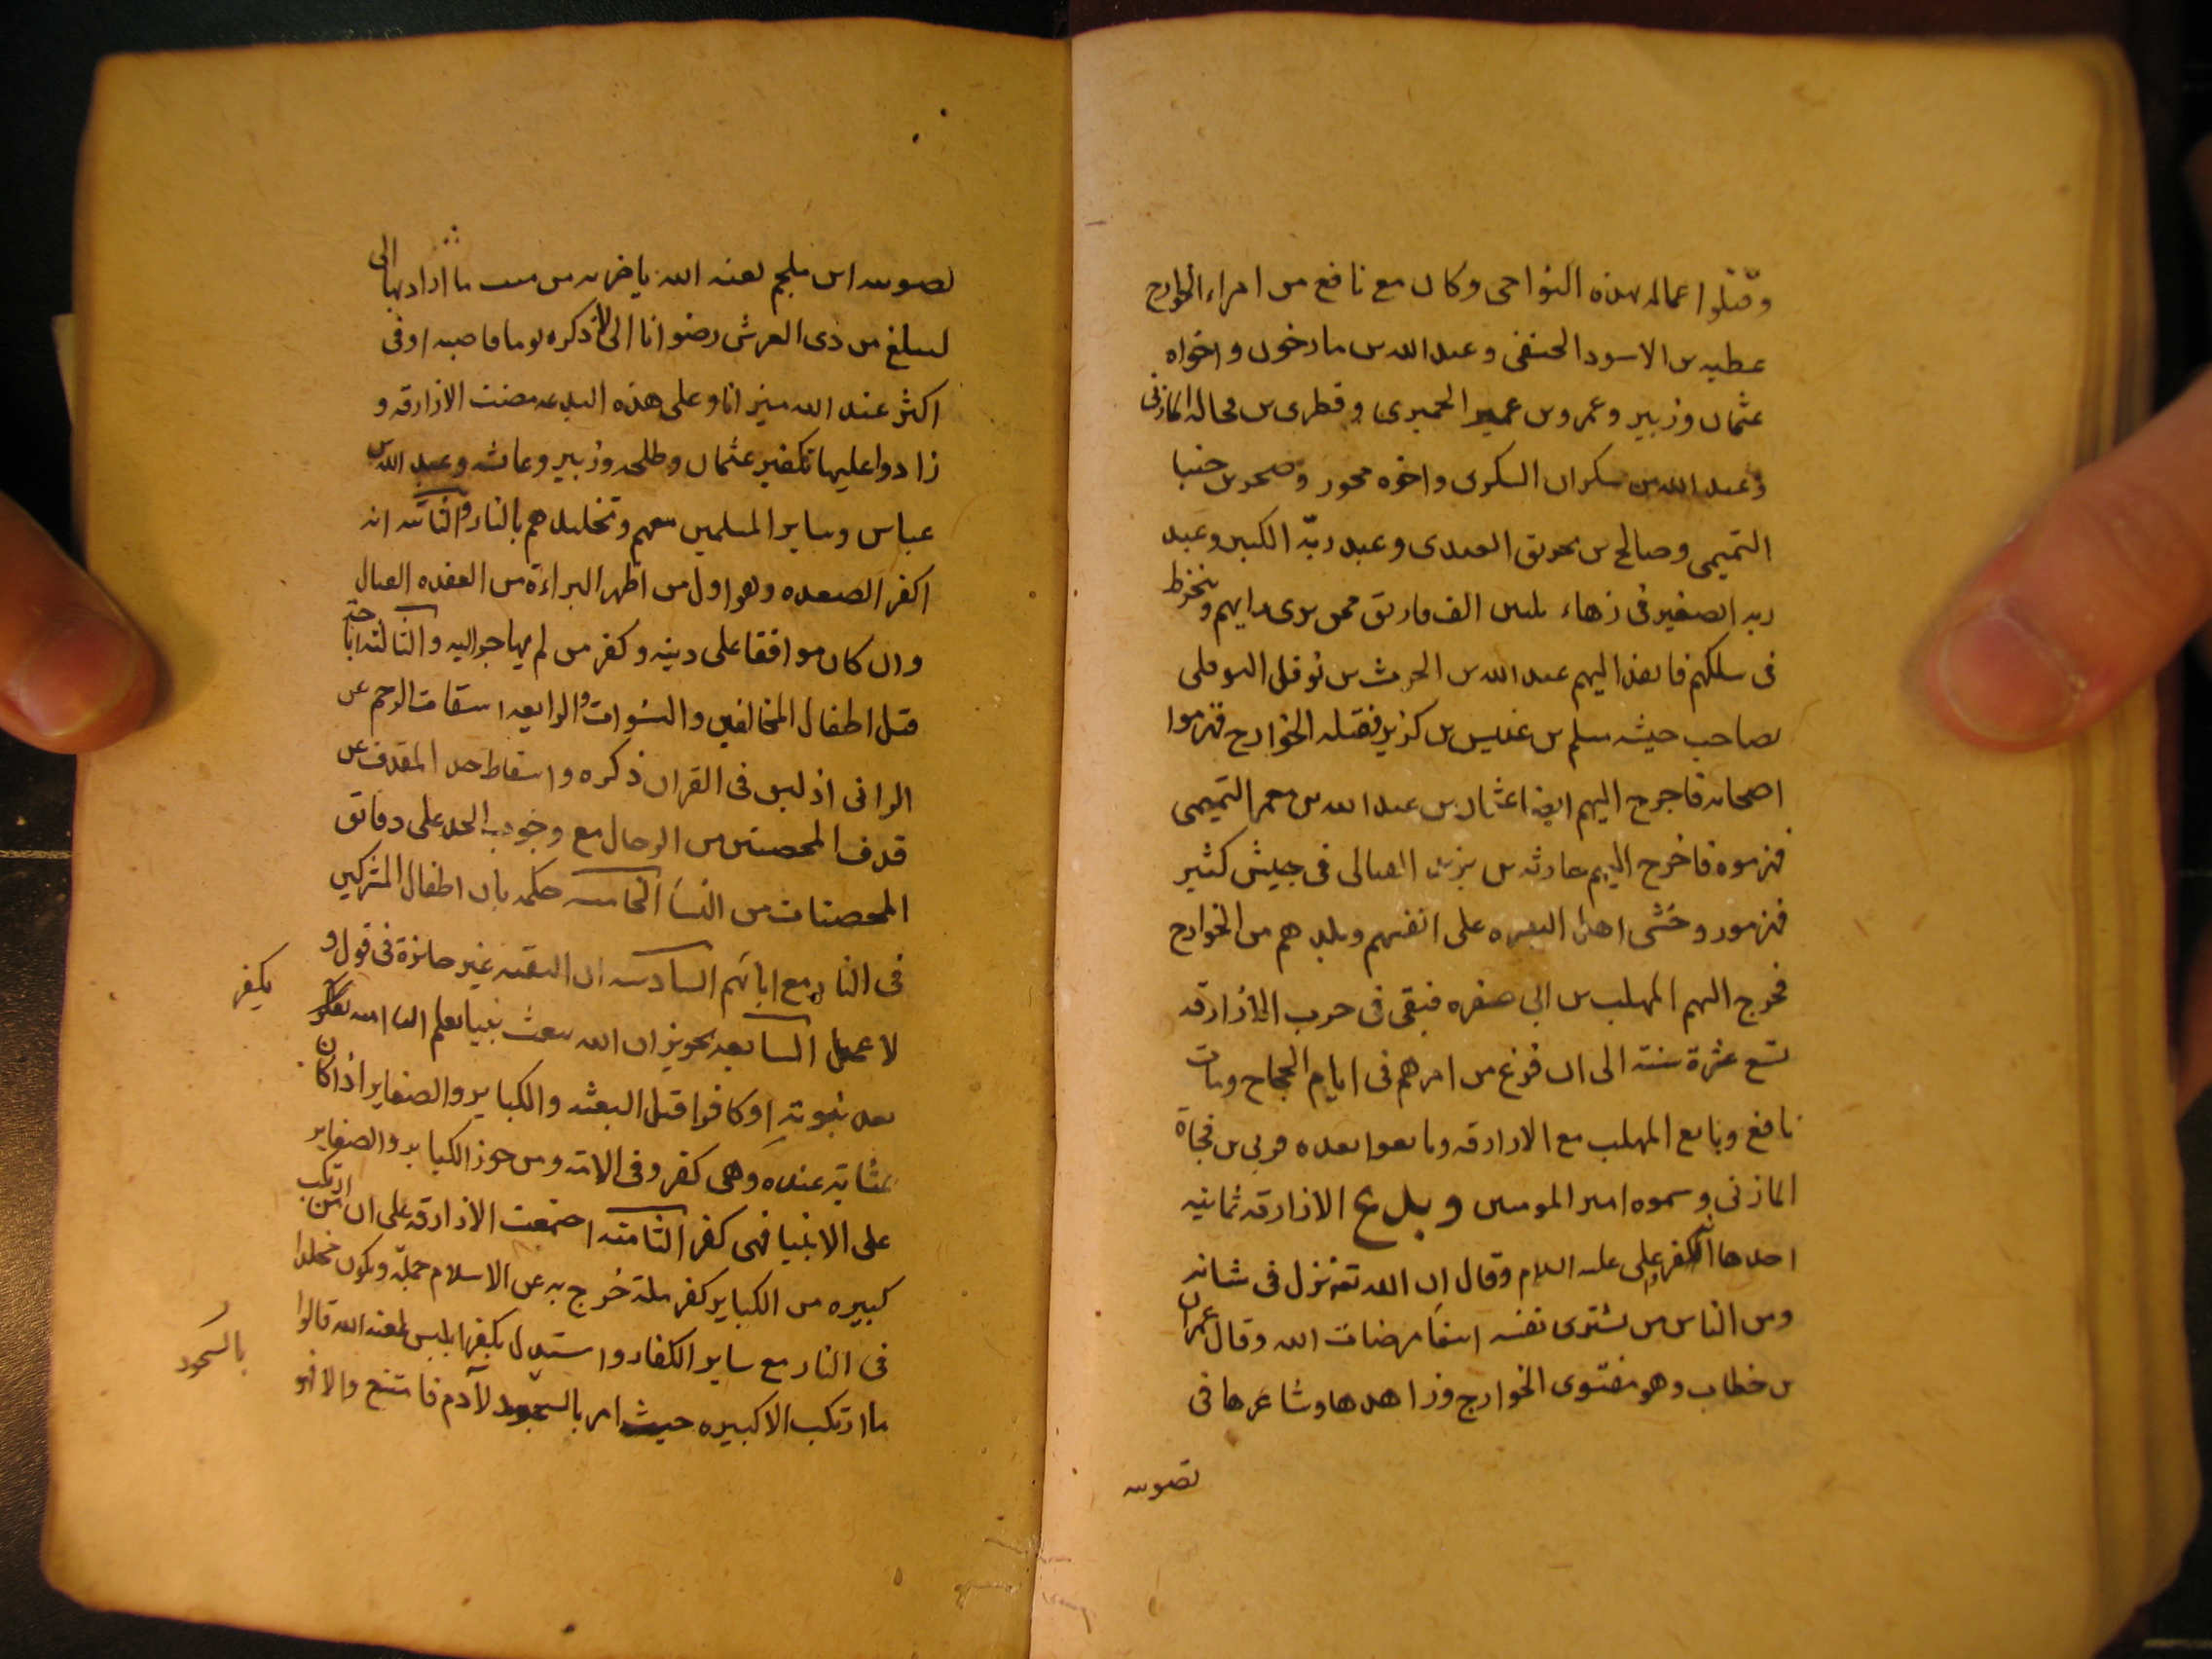 وقتلوا عماله بهذه النواحى وكان مع نافع من امراء الخوارج
عطيه بن الاسود الحنفى وعبد الله بن ماخون واخواه
عثمان وزبير وعمرو بن عمير الحميرى وقطرى بن فجاله المازنى
وعبد الله بن سكران السكرى واخوه محور وصحر بن حنبا
التميمى وصالح بن محرىق العبدى وعبد ربّه الكبير وعبد
ربه الصغير فى زهاء ثلثين الف مارىق ممن يرى رايهم وينخرط
فى سلكهم فانفذ اليهم عبد الله بن الحرث بن نوفل النوفلى
بصاحب جيشه مسلم بن عنبيس بن كزيز فقتله الخوارج فهزموا
اصحابه فاخرج اليهم ايضا عثمان بن عبد الله بن معمر التميمى
فهزموه فاخرج اليهم حارثه بن بزيد العبالى فى جيش كثير
فهزموه وخشى اهل البصره على انفسهم وبلدهم من الخوارج
فخرج اليهم المهلب بن ابى صفره فبقى فى حرب الازارقه
تسع عشرة سنة الى ان فرغ من امرهم فى ايام الحجاج ومات
نافع وبايع المهلب مع الازارقه وبايعوا بعده قربى بن فجاة
المازنى وسموه امير المومنين وبدع الازارقه ثمانيه
احدها انه كفر على عليه السلام وقال ان الله تع نزل فى شانه
ومن الناس من يشترى نفسه ابتغا مرضات الله وقال عمران
بن خطاب وهو مفتوى الخوارج وزاهدها وشاعرها فى
تصويب
تصويب ابن ملجم لعنه الله يا ضربه من منيب ما اراد بها الى
ليبلغ من ذى العرش رضوانا انى لاذكره يوما فاحسبه اوفى
اكثر عند الله ميزانا وعلى هذه البدعه مضت الازارقه و
زادوا عليها تكفير عثمان وطلحه وزبير وعائشه وعبد الله بن
عباس وساير المسلمين معهم وتخليدهم بالنار والثانيه انه
اكفر الصعده وهو اول من اظهر البراءة من العقده القبال
وان كان موافقا على دينه وكفر من لم يهاجر اليه والثالثه اباحته
قتل اطفال المخالفين والنسوان والرابعه اسقاط الرجم عن
الزانى اذ ليس فى القران ذكره واسقاط حد المقدف عن
قدف المحصنين من الرجال مع وجوب الحد على دقائق
المحصنات من النسا الخامسه حكمه بان اطفال المشركين
فى النار مع ابائهم السادسه ان التقيه غير جائزة فى قول و
لا عمل السابعه تجويز ان الله يبعث نبيا يعلم الله انه يكفر
بعد نبوته او كافرا قبل البعثه والكباير والصغاير اذا كان
بمثابة عنده وهى كفر وفى الامة ومن جوز الكباير والصغاير
على الانبيا فهى كفر الثامنه اجتمعت الازارقه على ان من ارتكب
كبيره من الكباير كفر ملة خرج به عن الاسلام جملة ويكون مخلدا
فى النار مع ساير الكفار واستدل بكفر ابليس لعنه الله قالوا
ما ارتكب الا كبيره حيث امر بالسجود لآدم فامتنع والا فهو
يكفر
بالسجود